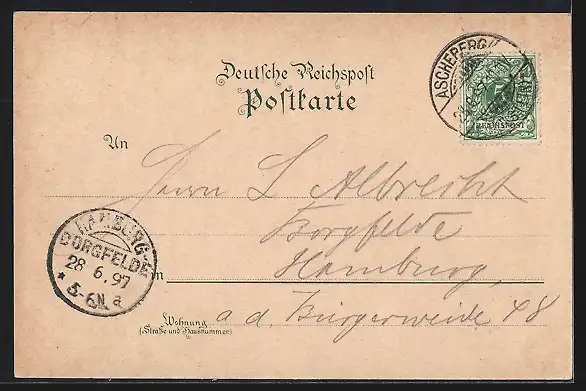 Deutsche Reichspost
Postkarte
ASCHEBERG
REICHSPOST
An
Herrn L Albrecht
Borgfelde
HAMBURG-
BORGFELDE
28 6. 97
* 5-6N. a
in Hamburg,
a. d. Bürgerweide 48
Wohnung
(Straße und Hausnummer)